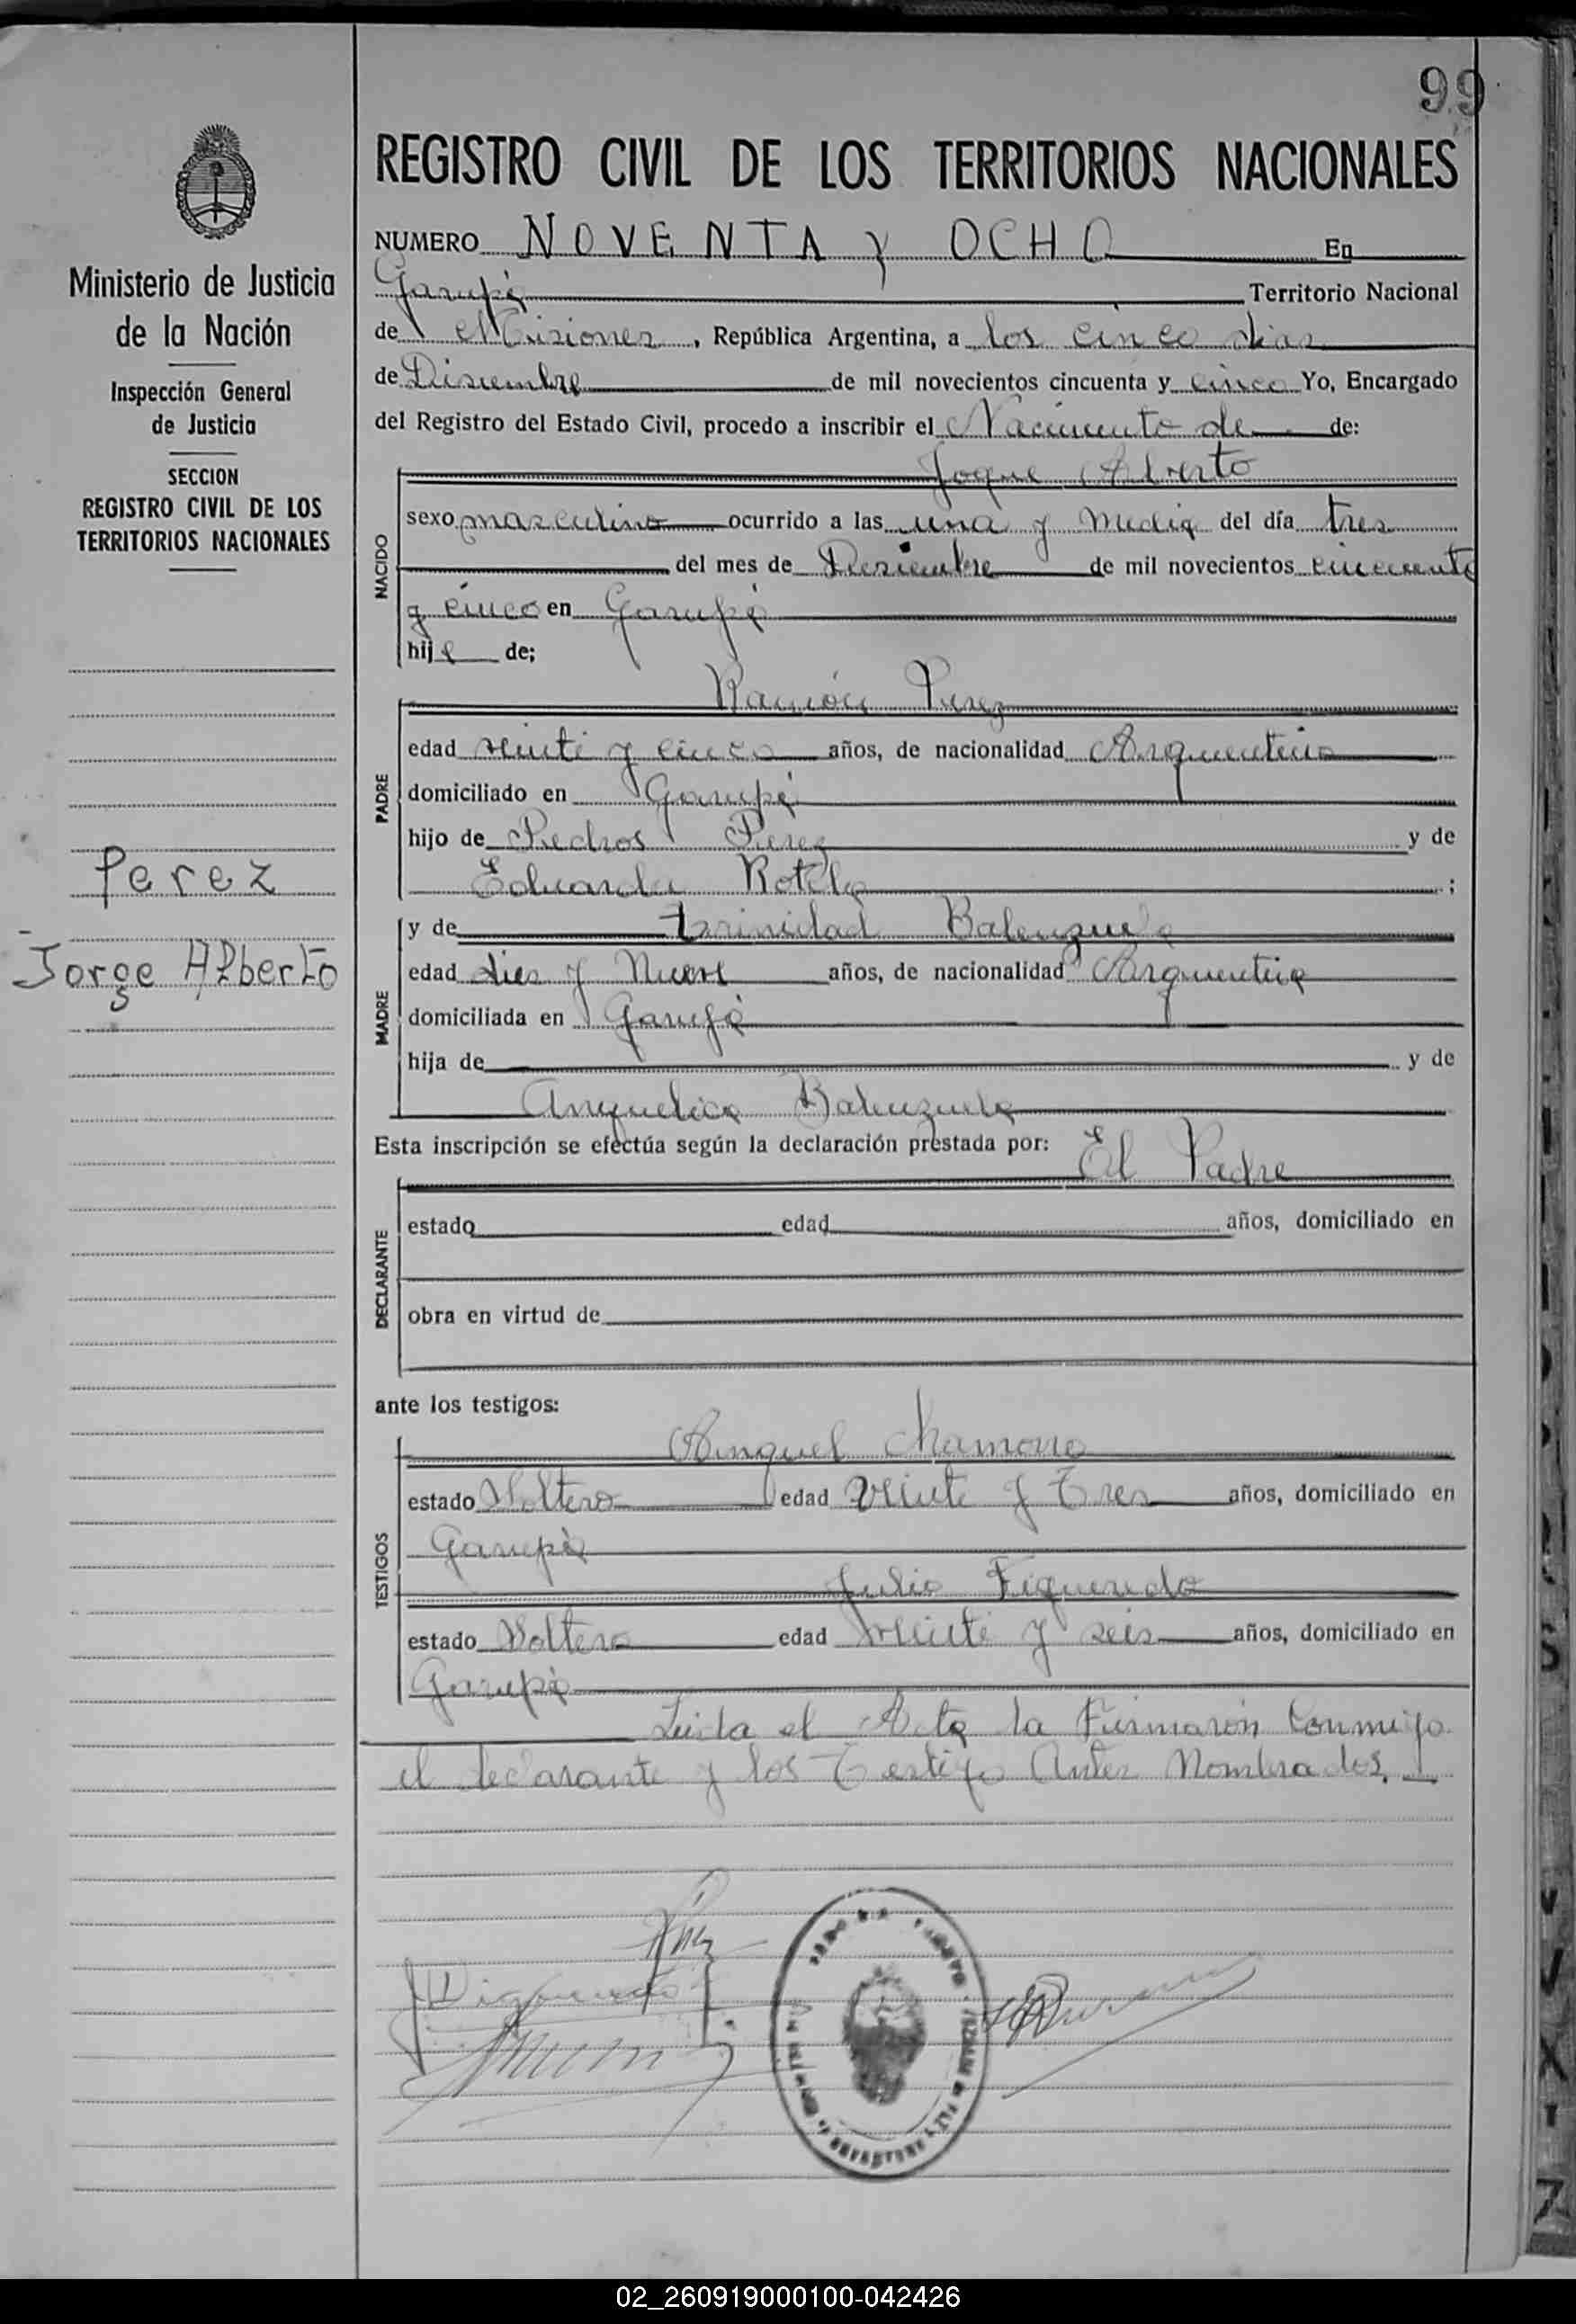 99
Ministerio de Justicia
de la Nación
Inspección General
de Justicia
SECCION
REGISTRO CIVIL DE LOS
TERRITORIOS NACIONALES
Perez
Jorge Alberto
REGISTRO CIVIL DE LOS TERRITORIOS NACIONALES
NUMERO NOVENTA y OCHO En
Garupá Territorio Nacional
de Misiones, República Argentina, a los cinco dias
de Disiembre de mil novecientos cincuenta y cinco Yo, Encargado
del Registro del Estado Civil, procedo a inscribir el Nacimiento de de:
Jogue Alberto
NACIDO
sexo masculino ocurrido a las una y Media del día tres
del mes de Disiembre de mil novecientos cincuenta
y cinco en Garupá
hijo de;
Ramón Perez
PADRE
edad veinti y cinco años, de nacionalidad Arguentino
domiciliado en Garupá
hijo de Pedros Perez y de
Eduarda Rotela;
MADRE
y de trinidad Balenzuela
edad dies y Nueve años, de nacionalidad Arguentina
domiciliada en Garupá
hija de y de
Anguelica Balenzuela
Esta inscripción se efectúa según la declaración prestada por: El Padre
DECLARANTE
estado edad años, domiciliado en
obra en virtud de
ante los testigos:
Anguel Chamorro
TESTIGOS
estado Soltero edad Veinte y Tres años, domiciliado en
Garupá
Julio Figueredo
estado Soltero edad Veinti y seis años, domiciliado en
Garupá
Leida el Acta la Firmarón Conmigo
el declarante y los Testigo Antes Nombrados.
02_260919000100-042426